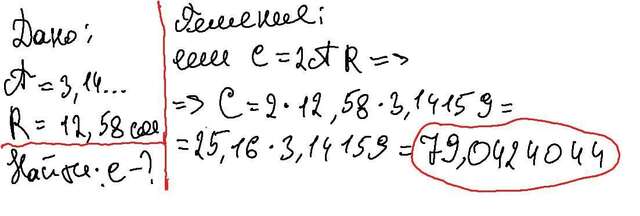 Дано:
π = 3,14...
R = 12,58 см
Найти: C - ?
Решение:
если C = 2π R =>
=> C = 2 · 12,58 · 3,14159 =
= 25,16 · 3,14159 = 79,0424044